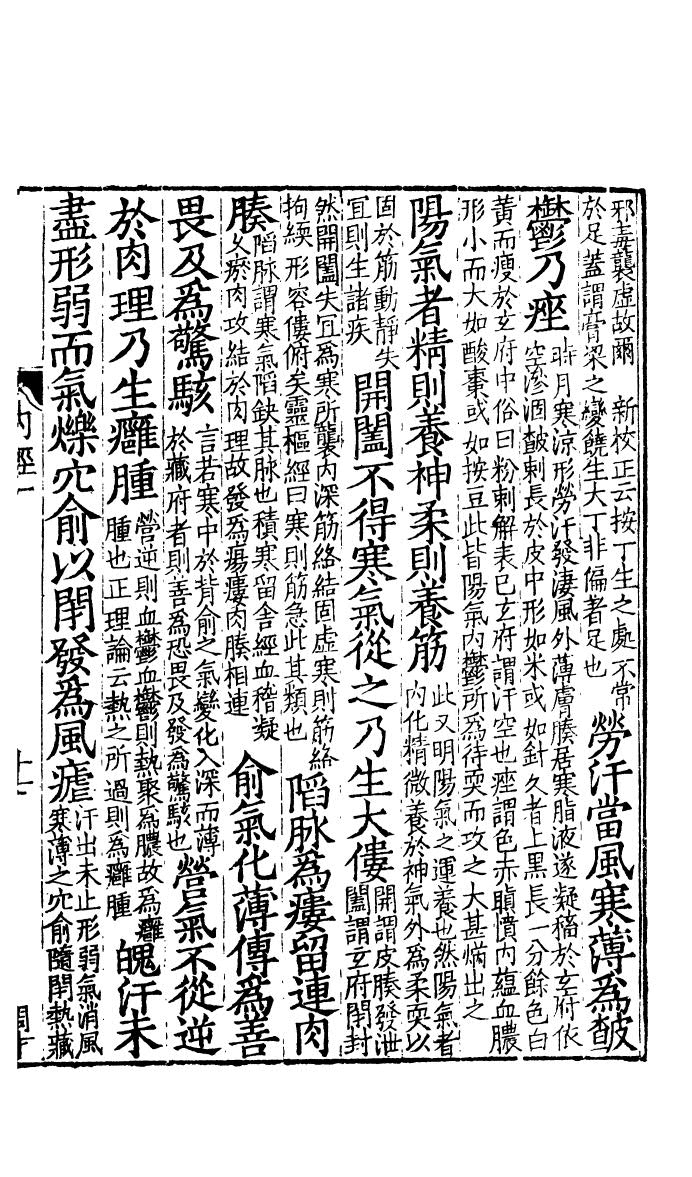 邪毒襲虛故爾　新校正云按丁生之處不常
於足蓋謂膏粱之變饒生大丁非偏著足也
勞汗當風寒薄為皶
鬱乃痤
時月寒涼形勞汗發淒風外薄膚腠居寒脂液遂凝稸於玄府依
空滲涸皶刺長於皮中形如米或如針久者上黑長一分餘色白
黃而瘦於玄府中俗曰粉刺解表已玄府謂汗空也痤謂色赤瞋憤内蘊血膿
形小而大如酸棗或如按豆此皆陽氣内鬱所為待耎而攻之大甚焫出之
陽氣者精則養神柔則養筋
此又明陽氣之運養也然陽氣者
内化精微養於神氣外為柔耎以
固於筋動靜失
宜則生諸疾
開闔不得寒氣從之乃生大僂
開謂皮腠發泄
闔謂玄府閉封
然開闔失宜為寒所襲内深筋絡結固虛寒則筋絡
拘緛形容僂俯矣靈樞經曰寒則筋急此其類也
陷脉為瘻留連肉
腠
陷脉謂寒氣陷缺其脉也積寒留舍經血稽凝
久瘀肉攻結於肉理故發為瘍瘻肉腠相連
俞氣化薄傳為善
畏及為驚駭
言若寒中於背俞之氣變化入深而薄
於藏府者則善為恐畏及發為驚駭也
營氣不從逆
於肉理乃生癰腫
營逆則血鬱血鬱則熱聚為膿故為癰
腫也正理論云熱之所過則為癰腫
魄汗未
盡形弱而氣爍穴俞以閉發為風瘧
汗出未止形弱氣消風
寒薄之穴俞隨閉熱藏
内經一
十一